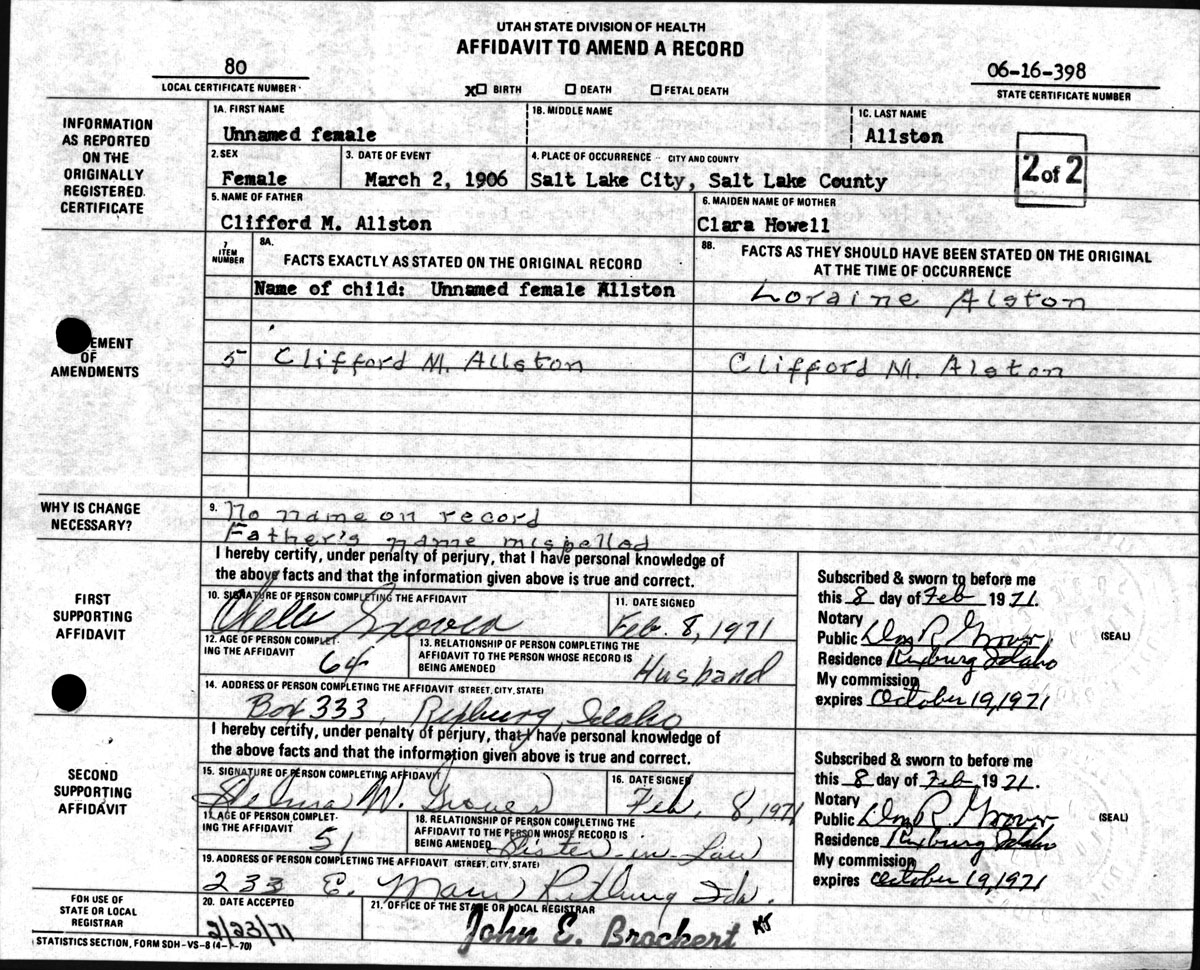 UTAH STATE DIVISION OF HEALTH
AFFIDAVIT TO AMEND A RECORD
80
LOCAL CERTIFICATE NUMBER
X BIRTH DEATH FETAL DEATH
06-16-398
STATE CERTIFICATE NUMBER
INFORMATION AS REPORTED ON THE ORIGINALLY REGISTERED CERTIFICATE
1A. FIRST NAME
Unnamed female
1B. MIDDLE NAME
1C. LAST NAME
Allston
2. SEX
Female
3. DATE OF EVENT
March 2, 1906
4. PLACE OF OCCURRENCE - CITY AND COUNTY
Salt Lake City, Salt Lake County
2 of 2
5. NAME OF FATHER
Clifford M. Allston
6. MAIDEN NAME OF MOTHER
Clara Howell
EMENT OF AMENDMENTS
7 ITEM NUMBER
8A. FACTS EXACTLY AS STATED ON THE ORIGINAL RECORD
8B. FACTS AS THEY SHOULD HAVE BEEN STATED ON THE ORIGINAL AT THE TIME OF OCCURRENCE
Name of child: Unnamed female Allston
Loraine Alston
5 Clifford M. Allston
Clifford M. Alston
WHY IS CHANGE NECESSARY?
9. No name on record
Father's name mispelled
FIRST SUPPORTING AFFIDAVIT
I hereby certify, under penalty of perjury, that I have personal knowledge of
the above facts and that the information given above is true and correct.
10. SIGNATURE OF PERSON COMPLETING THE AFFIDAVIT
Grover
11. DATE SIGNED
Feb. 8, 1971
12. AGE OF PERSON COMPLETING THE AFFIDAVIT
64
13. RELATIONSHIP OF PERSON COMPLETING THE AFFIDAVIT TO THE PERSON WHOSE RECORD IS BEING AMENDED
Husband
14. ADDRESS OF PERSON COMPLETING THE AFFIDAVIT (STREET, CITY, STATE)
Box 333, Rexburg, Idaho
Subscribed & sworn to before me
this 8 day of Feb 1971.
Notary
Public R. Grover (SEAL)
Residence Rexburg Idaho
My commission
expires October 19, 1971
SECOND SUPPORTING AFFIDAVIT
I hereby certify, under penalty of perjury, that I have personal knowledge of
the above facts and that the information given above is true and correct.
15. SIGNATURE OF PERSON COMPLETING AFFIDAVIT
W. Grover
16. DATE SIGNED
Feb. 8, 1971
17. AGE OF PERSON COMPLETING THE AFFIDAVIT
51
18. RELATIONSHIP OF PERSON COMPLETING THE AFFIDAVIT TO THE PERSON WHOSE RECORD IS BEING AMENDED
Sister-in-Law
19. ADDRESS OF PERSON COMPLETING THE AFFIDAVIT (STREET, CITY, STATE)
233 E. Main Rexburg Ida.
Subscribed & sworn to before me
this 8 day of Feb 1971.
Notary
Public R. Grover (SEAL)
Residence Rexburg Idaho
My commission
expires October 19, 1971
FOR USE OF STATE OR LOCAL REGISTRAR
20. DATE ACCEPTED
2/23/71
21. OFFICE OF THE STATE OR LOCAL REGISTRAR
John E. Brockert
STATISTICS SECTION, FORM SDH-VS-8 (4-1-70)